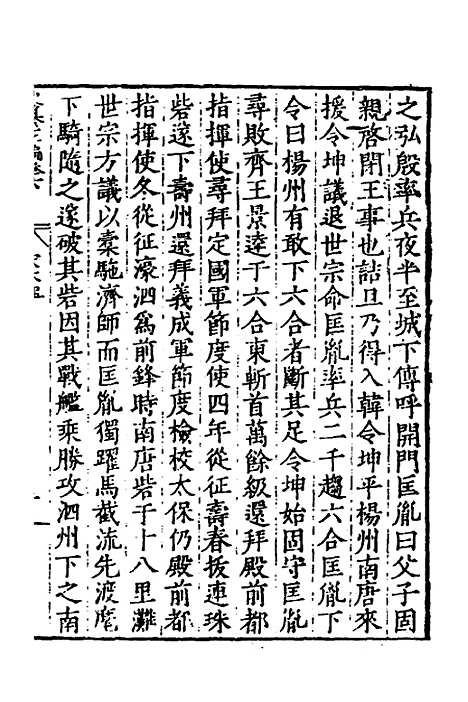 之弘殷率兵夜半至城下傳呼開門匡胤曰父子固
親啓閉王事也詰旦乃得入韓令坤平楊州南唐來
援令坤議退世宗命匡胤率兵二千趨六合匡胤下
令曰楊州有敢下六合者斷其足令坤始固守匡胤
尋敗齊王景達于六合東斬首萬餘級還拜殿前都
指揮使尋拜定國軍節度使四年從征壽春拔連珠
砦遂下壽州還拜義成軍節度檢校太保仍殿前都
指揮使冬從征濠泗爲前鋒時南唐砦于十八里灘
世宗方議以橐駞濟師而匡胤獨躍馬截流先渡麾
下騎隨之遂破其砦因其戰艦乘勝攻泗州下之南